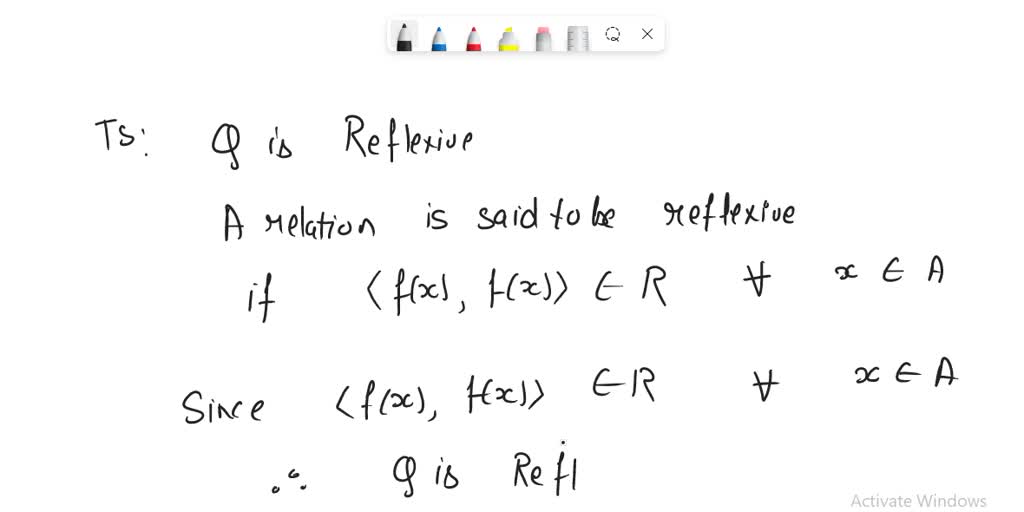 TS: Q is Reflexive
A relation is said to be reflexive
if ⟨f(x), f(x)⟩ ∈ R ∀ x ∈ A
Since ⟨f(x), f(x)⟩ ∈ R ∀ x ∈ A
∴ Q is Refl
Activate Windows